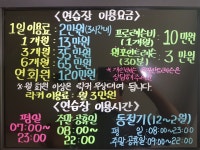 <연습장 이용요금>
1일이용료 : 2만원(3시간)
1개월 : 13만원
3개월 : 35만원
6개월 : 65만원
연회원 : 120만원
프로레슨비 : 10만원
(1개월)
원포인트레슨 : 3만원
(30분)
※ 월 회원 이상은 락카 무상대여 됩니다.
락카 이용료 : 월 3만원
<연습장 이용시간>
평일
07:00~
23:00
주말·공휴일
08:00~
22:00
동절기(12~2월)
평일 - 08:00~23:00
주말·공휴일 -